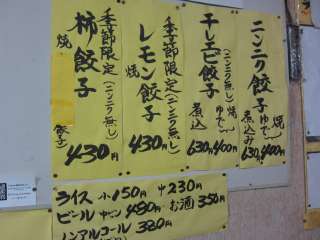 ニンニク餃子
焼 400円
ゆで
煮込み 630円
干しエビ餃子
(ニンニク無し)
焼 400円
ゆで
煮込 630円
季節限定(ニンニク無し)
レモン餃子
焼
430円
季節限定(ニンニク無し)
柿餃子
焼
430円
餃子
ライス 小150円 中230円
ビール 中ビン 480円 お酒 350
ノンアルコール 320円